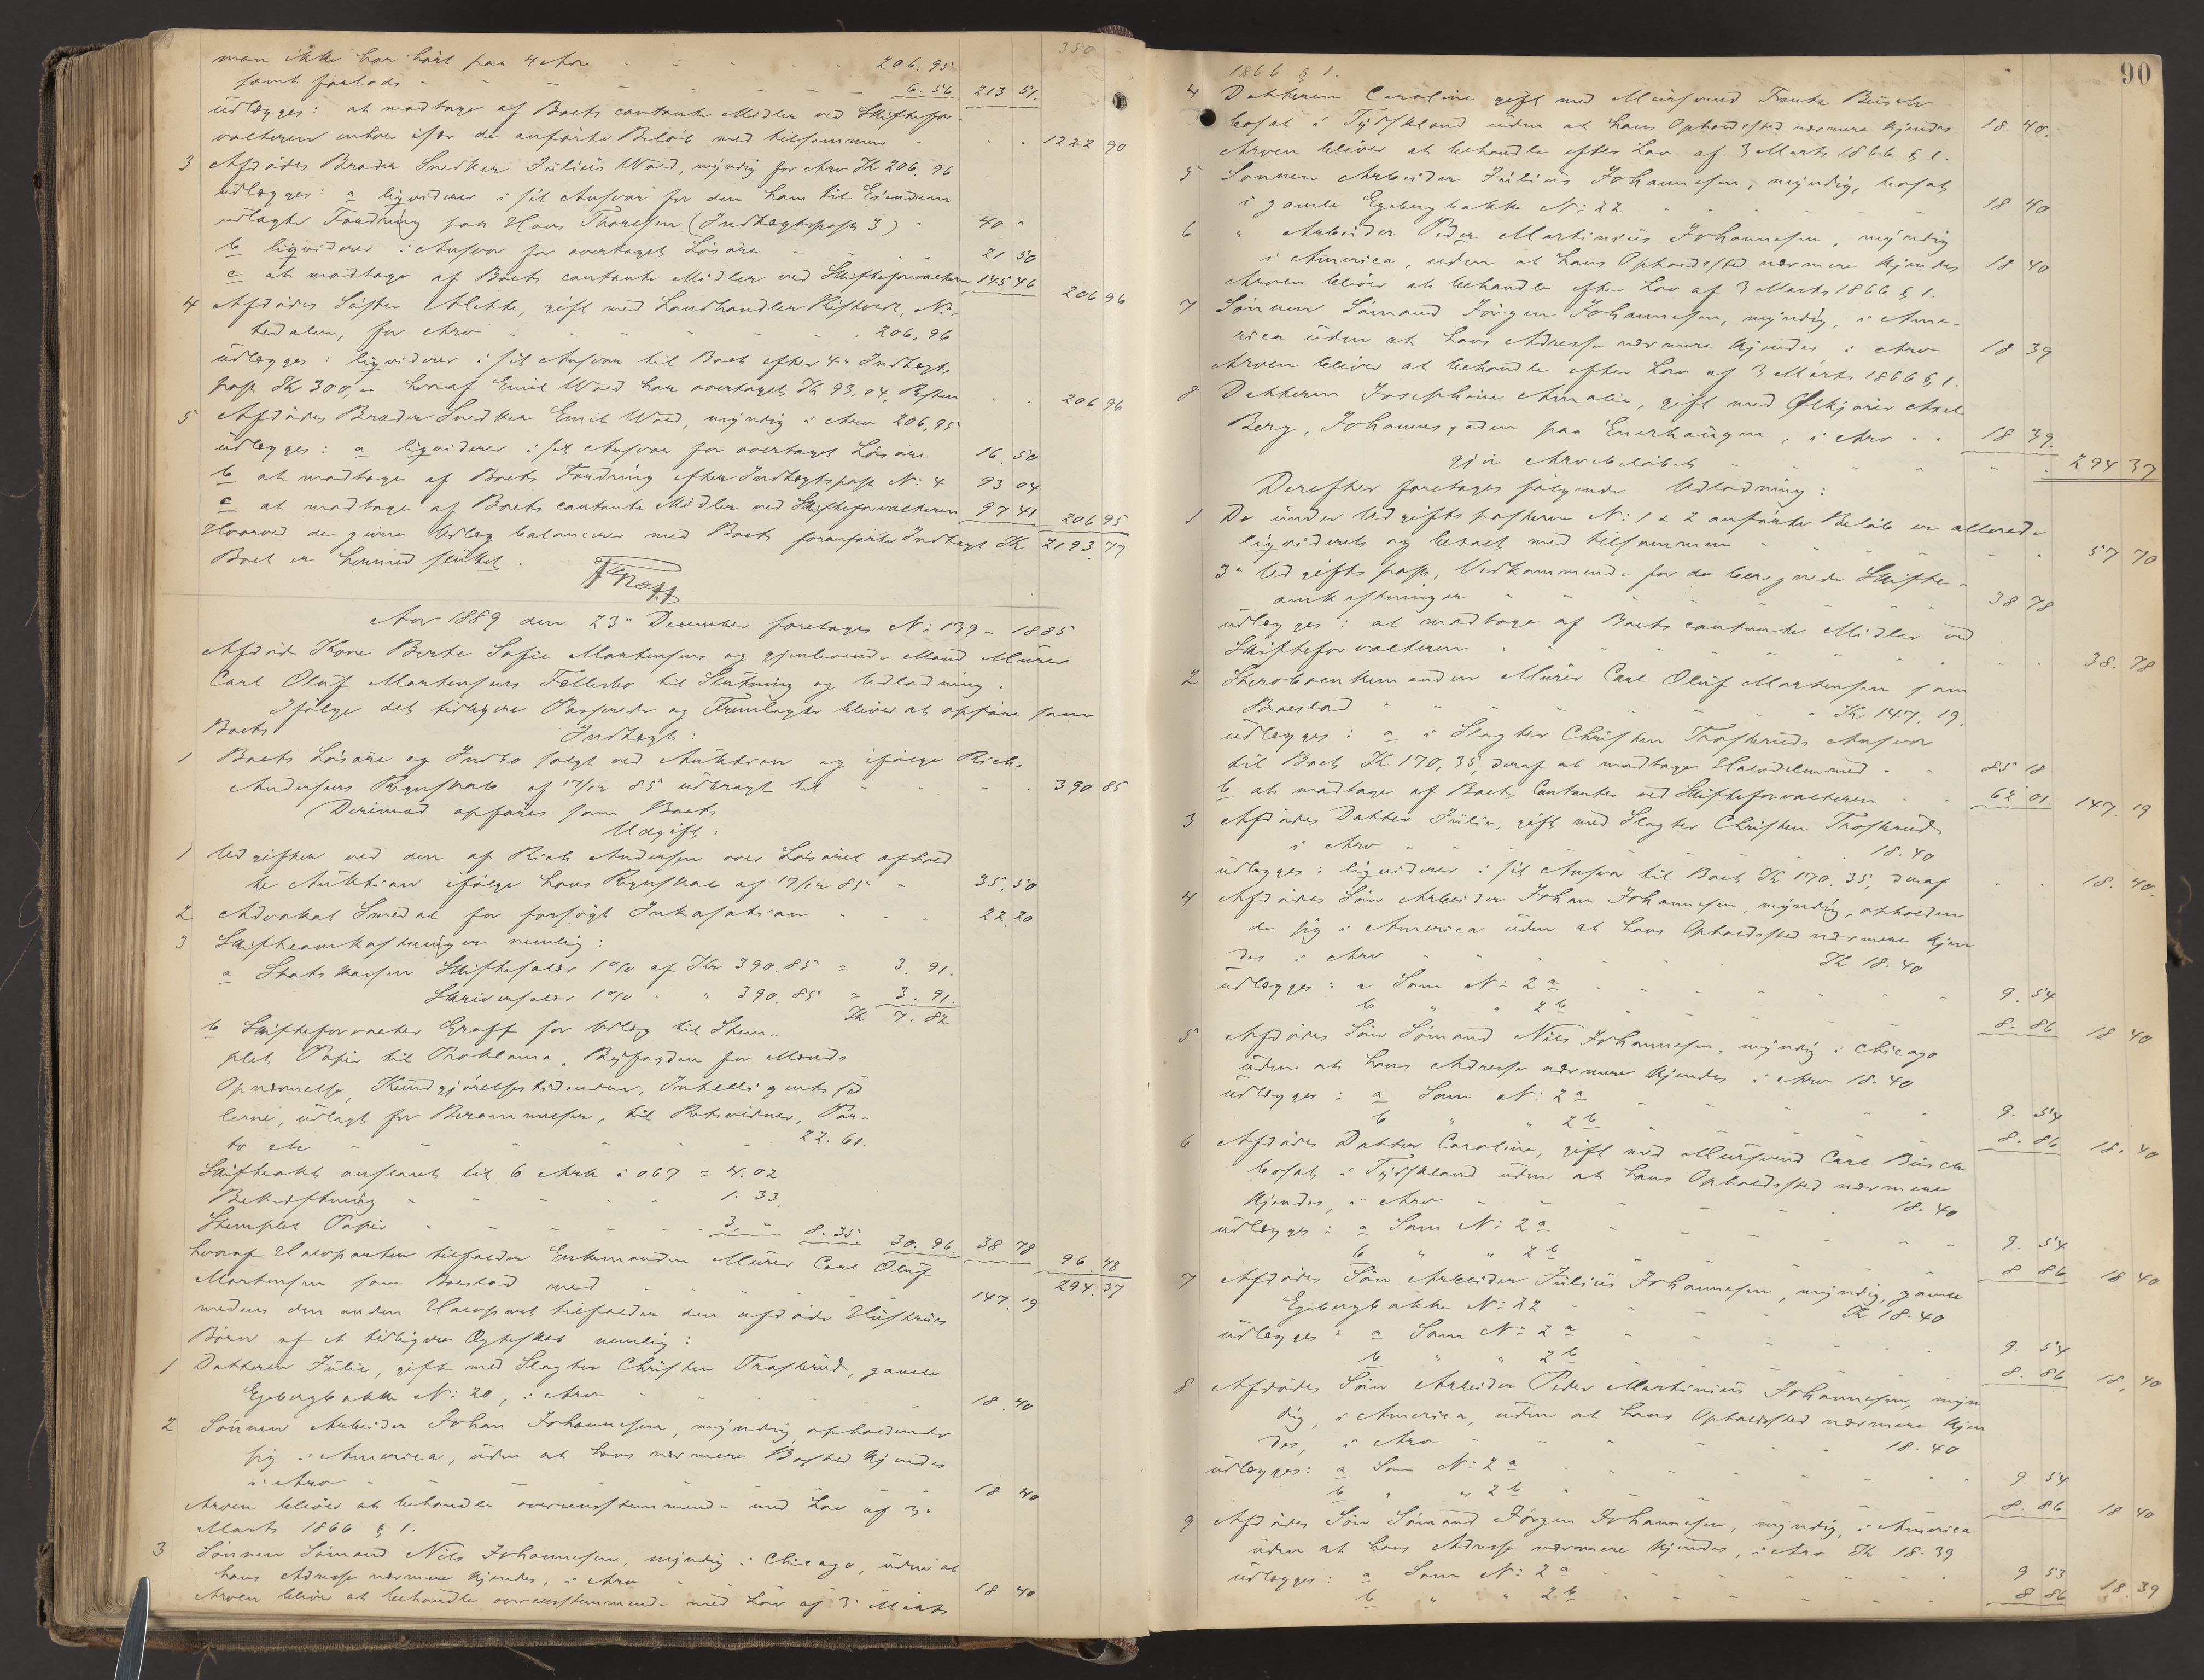 350
man ikke har hørt paa 4 Aar - - - - 206.95
samt forlods - - - - 6.56 213 51.
udlægges: at modtage af Boets contante Midler ved Skiftefor-
valteren enhver især de anførte Beløb med tilsammen - - 1222 90
3 Afdødes Broder Snedker Julius Wold, myndig for Arv Kr 206,96
udlægges: a liqviderer i sit Ansvar for den ham til Eiendom
udlagte Fordring paa Hans Thoresen (Indtægtspost 3) - 40 "
b liqviderer i Ansvar for overtaget Løsøre - - 21 50
c at modtage af Boets contante Midler ved Skifteforvalteren 145 46 206 96
4 Afdødes Søster Alette, gift med Landhandler Nit-
tedalen, for Arv - - - - 206.96
udlægges: liqviderer i sit Ansvar til Boet efter 4de Indtægts
post Kr 300,00 hvoraf Emil Wold har overtaget Kr 93.04, Resten - - 206 96
5 Afdødes Broder Snedker Emil Wold, myndig i Arv 206,95
udlægges: a liqviderer i sit Ansvar for overtaget Løsøre 16.50
b at modtage af Boets Fordring efter Indtægtspost No: 4 93 04
c at modtage af Boets contante Midler ved Skifteforvalteren 97 41 206 95
Hvorved de givne Udlæg balancerer med Boets foranførte Indtægt Kr 2193.77
Boet er hermed sluttet.
Graff
Aar 1889 den 23de December foretages No: 139 - 1885
Afdøde Kone Berte Sofie Martensens og gjenlevende Mand Murer
Carl Oluf Martensens Fællesbo til Slutning og Udlodning.
Ifølge det tidligere Passerede og Fremlagte bliver at opføre som
Boets Indtægt:
1 Boets Løsøre og Indbo solgt ved Auktion og ifølge Rich.
Andersens Regnskab af 17/12 85 udbragt til - - - 390 85
Derimod opføres som Boets
Udgift:
1 Udgiften ved den af Rich Andersen over Løsøret afhold
te Auktion ifølge hans Regnskab af 17/12 85 - 35.50
2 Advokat Smedal for forsøgt Inkasation - - - 22.20
3 Skifteomkostninger nemlig:
a Statskassen Skiftesalær 1% af Kr 390.85 = 3.91.
Skriversalær 1% " " 390.85 = 3.91.
Kr 7.82
b Skifteforvalter Graff for Udlæg til Stem-
plet Papir til Proklama, Byfogden for Mænds
Opnævnelse, Kundgjørelsestidenden, Intelligentssed
lerne, udlagt for Berammelser, til Retsvidner, Por-
to etc - - - - 22.61.
Skifteakt anslaaet til 6 Ark à 067 = 4.02
Bekræftning - - - - 1.33.
Stemplet Papir - - - - 3. " 8.35. 30.96. 38 78 96.48
hvoraf Halvparten tilfalder Enkemanden Murer Carl Oluf 294.37
Martensen som Boeslod med - - - - 147.19
medens den anden Halvpart tilfalder den afdøde Hustrues
Børn af et tidligere Ægteskab nemlig:
1 Datteren Julie, gift med Slagter Christen Trosterud, gamle
Egebergbakke No: 20, i Arv - - - 18.40
2 Sønnen Arbeider Johan Johannesen, myndig opholdende
sig i America, uden at hans nærmere Bosted kjendes
i Arv - - - - 18 40
Arven bliver at behandle overensstemmende med Lov af 3die
Marts 1866 § 1.
3 Sønnen Sømand Nils Johannesen, myndig i Chicago, uden at
hans Adresse nærmere kjendes, i Arv - - - 18 40
Arven bliver at behandle overensstemmende med Lov af 3 Marts
90
1866 § 1.
4 Datteren Caroline gift med Mursvend Busch
bosat i Tydskland uden at hans Opholdsted nærmere kjendes 18.40.
Arven bliver at behandle efter Lov af 3 Marts 1866 § 1.
5 Sønnen Arbeider Julius Johannesen, myndig, bosat
i gamle Egebergbakke No: 22 - - - 18 40
6 " Arbeider Peder Martinius Johannesen, myndig
i America, uden at hans Opholdsted nærmere kjendes 18 40
Arven bliver at behandle efter Lov af 3 Marts 1866 § 1.
7 Sønnen Sømand Jørgen Johannesen, myndig, i Ame-
rica uden at hans Adresse nærmere kjendes, i Arv 18 39
Arven bliver at behandle efter Lov af 3 Marts 1866 § 1.
8 Datteren Josephine Amalie, gift med Ølkjører Axel
Berg, Johannesgaden paa Enerhaugen, i Arv - - 18 39.
gjør Arvebeløbet - - - - 294 37
Derefter foretages følgende Udlodning:
1 De under Udgiftsposterne No: 1 & 2 anførte Beløb er allerede
liqviderede og betalt med tilsammen - - - 57 70
3de Udgiftspost, Vedkommende for de beregnede Skifte-
omkostninger - - - - 38 78
udlægges: at modtage af Boets contante Midler ved
Skifteforvalteren - - - - 38.78
2 Stervboenkemanden Murer Carl Oluf Martensen som
Boeslod - - - - Kr 147.19.
udlægges: a i Slagter Christen Trosteruds Ansvar
til Boet Kr 170,35, deraf at modtage Halvdelen med - - 85 18
b at modtage af Boets Contanter ved Skifteforvalteren - 62 01. 147.19
3 Afdødes Datter Julie, gift med Slagter Christen Trosterud
i Arv - - - - 18.40
udlægges: liqviderer i sit Ansvar til Boet Kr 170.35, deraf - - 18.40.
4 Afdødes Søn Arbeider Johan Johannesen, myndig, opholden
de sig i America uden at hans Opholdsted nærmere kjen
des i Arv - - - - Kr 18.40
udlægges: a Som No: 2 a - - - 9.54
b " " 2 b - - - 8.86 18 40
5 Afdødes Søn Sømand Nils Johannesen, myndig i Chicago
uden at hans Adresse nærmere kjendes i Arv 18.40
udlægges: a Som No: 2 a - - - 9.54
b " " 2 b - - - 8.86 18.40
6 Afdødes Datter Caroline, gift med Mursvend Carl Busch
bosat i Tydskland uden at hans Opholdssted nærmere
kjendes, i Arv - - - - 18.40
udlægges: a Som No: 2 a - - - 9.54
b " " 2 b - - - 8 86 18 40
7 Afdødes Søn Arbeider Julius Johannesen, myndig, gamle
Egebergbakke No: 22 - - - Kr 18.40
udlægges: a Som No: 2 a - - - 9.54
b " " 2 b - - - 8.86 18.40
8 Afdødes Søn Arbeider Peder Martinius Johannesen, myn
dig, i America, uden at hans Opholdssted nærmere kjen
des, i Arv - - - - 18.40
udlægges: a Som No: 2 a - - - 9 54
b " " 2 b - - - 8.86 18 40
9 Afdødes Søn Sømand Jørgen Johannesen, myndig, i America
uden at hans Adresse nærmere kjendes, i Arv Kr 18.39
udlægges: a Som No: 2 a - - - 9 53
b " " 2 b - - - 8 86 18.39